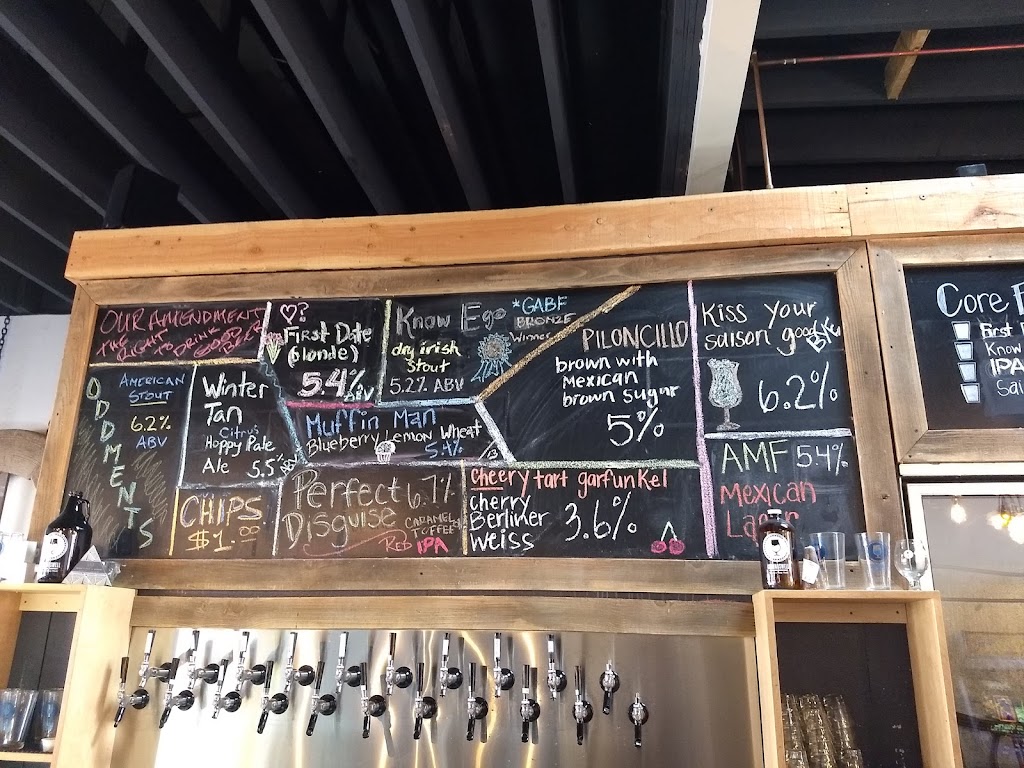 OUR AMENDMENT
THE RIGHT
TO DRINK
GOOD BEER
ODDMENTS
AMERICAN
STOUT
6.2%
ABV
Winter
Tan
Citrus
Hoppy Pale
Ale 5.5% ABV
CHIPS
$1.00
?
First Date
(blonde)
5.4%
ABV
Know Ego
dry irish
Stout
5.2% ABV
*GABF
BRONZE
Winner
Muffin Man
Blueberry Lemon Wheat
5.4%
Perfect 6.7%
Disguise
CARAMEL
TOFFEE
RED IPA
PILONCILLO
brown with
Mexican
brown sugar
5%
Cheery tart garfunkel
cherry
Berliner
weiss
3.6%
Kiss Your
saison good
Bye
6.2%
AMF 5.4%
Mexican
Lager
Core
First
Know
IPA
Sai